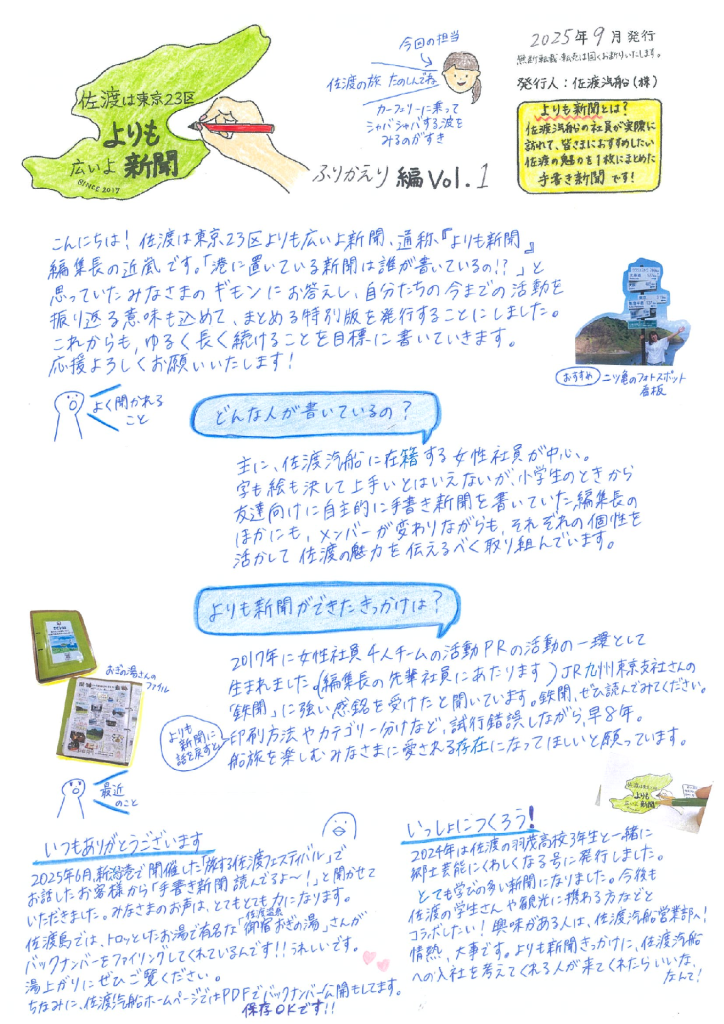 佐渡は東京23区
よりも
広いよ 新聞
SINCE 2017
今回の担当
佐渡の旅 たのしんでね
カーフェリーに乗って
シャバシャバする波を
みるのがすき
ふりかえり 編 Vol.1
2025年9月発行
無断転載・転売は固くお断りいたします。
発行人：佐渡汽船(株)
よりも新聞とは？
佐渡汽船の社員が実際に
訪れて、皆さまにおすすめしたい
佐渡の魅力を1枚にまとめた
手書き新聞です！
こんにちは！佐渡は東京23区よりも広いよ新聞、通称『よりも新聞』
編集長の近嵐です。「港に置いている新聞は誰が書いているの!?」と
思っていたみなさまのギモンにお答えし、自分たちの今までの活動を
振り返る意味も込めて、まとめる特別版を発行することにしました。
これからも、ゆるく長く続けることを目標に書いていきます。
応援よろしくお願いいたします！
おすすめ 二ツ亀のフォトスポット
看板
よく聞かれる
こと
どんな人が書いているの？
主に、佐渡汽船に在籍する女性社員が中心。
字も絵も決して上手いとはいえないが、小学生のときから
友達向けに自主的に手書き新聞を書いていた編集長の
ほかにも、メンバーが変わりながらも、それぞれの個性を
活かして佐渡の魅力を伝えるべく取り組んでいます。
よりも新聞ができたきっかけは？
おぎの湯さんの
ファイル
2017年に女性社員4人チームの活動PRの活動の一環として
生まれました。(編集長の先輩社員にあたります)JR九州東京支社さんの
「鉄聞」に強い感銘を受けたと聞いています。鉄聞、ぜひ読んでみてください。
よりも
新聞に
話を戻すと
印刷方法やカテゴリー分けなど、試行錯誤しながら、早8年。
船旅を楽しむみなさまに愛される存在になってほしいと願っています。
最近
のこと
いつもありがとうございます
2025年6月、新潟港で開催した「旅する佐渡フェスティバル」で
お話したお客様から「手書き新聞読んでるよ～！」と聞かせて
いただきました。みなさまのお声は、とてもとても力になります。
佐渡島では、トロッとしたお湯で有名な「佐渡温泉
御宿おぎの湯」さんが
バックナンバーをファイリングしてくれているんです!!うれしいです。
湯上がりにぜひご覧ください。
ちなみに、佐渡汽船ホームページではPDFでバックナンバー公開もしてます。
保存OKです!!
佐渡は東京23区
よりも
広いよ 新聞
いっしょにつくろう！
2024年は佐渡の羽茂高校3年生と一緒に
郷土芸能にくわしくなる号に発行しました。
とても学びの多い新聞になりました。今後も
佐渡の学生さんや観光に携わる方などと
コラボしたい！興味がある人は、佐渡汽船営業部へ！
情熱、大事です。よりも新聞きっかけに、佐渡汽船
への入社を考えてくれる人が来てくれたらいいな、
なんて！